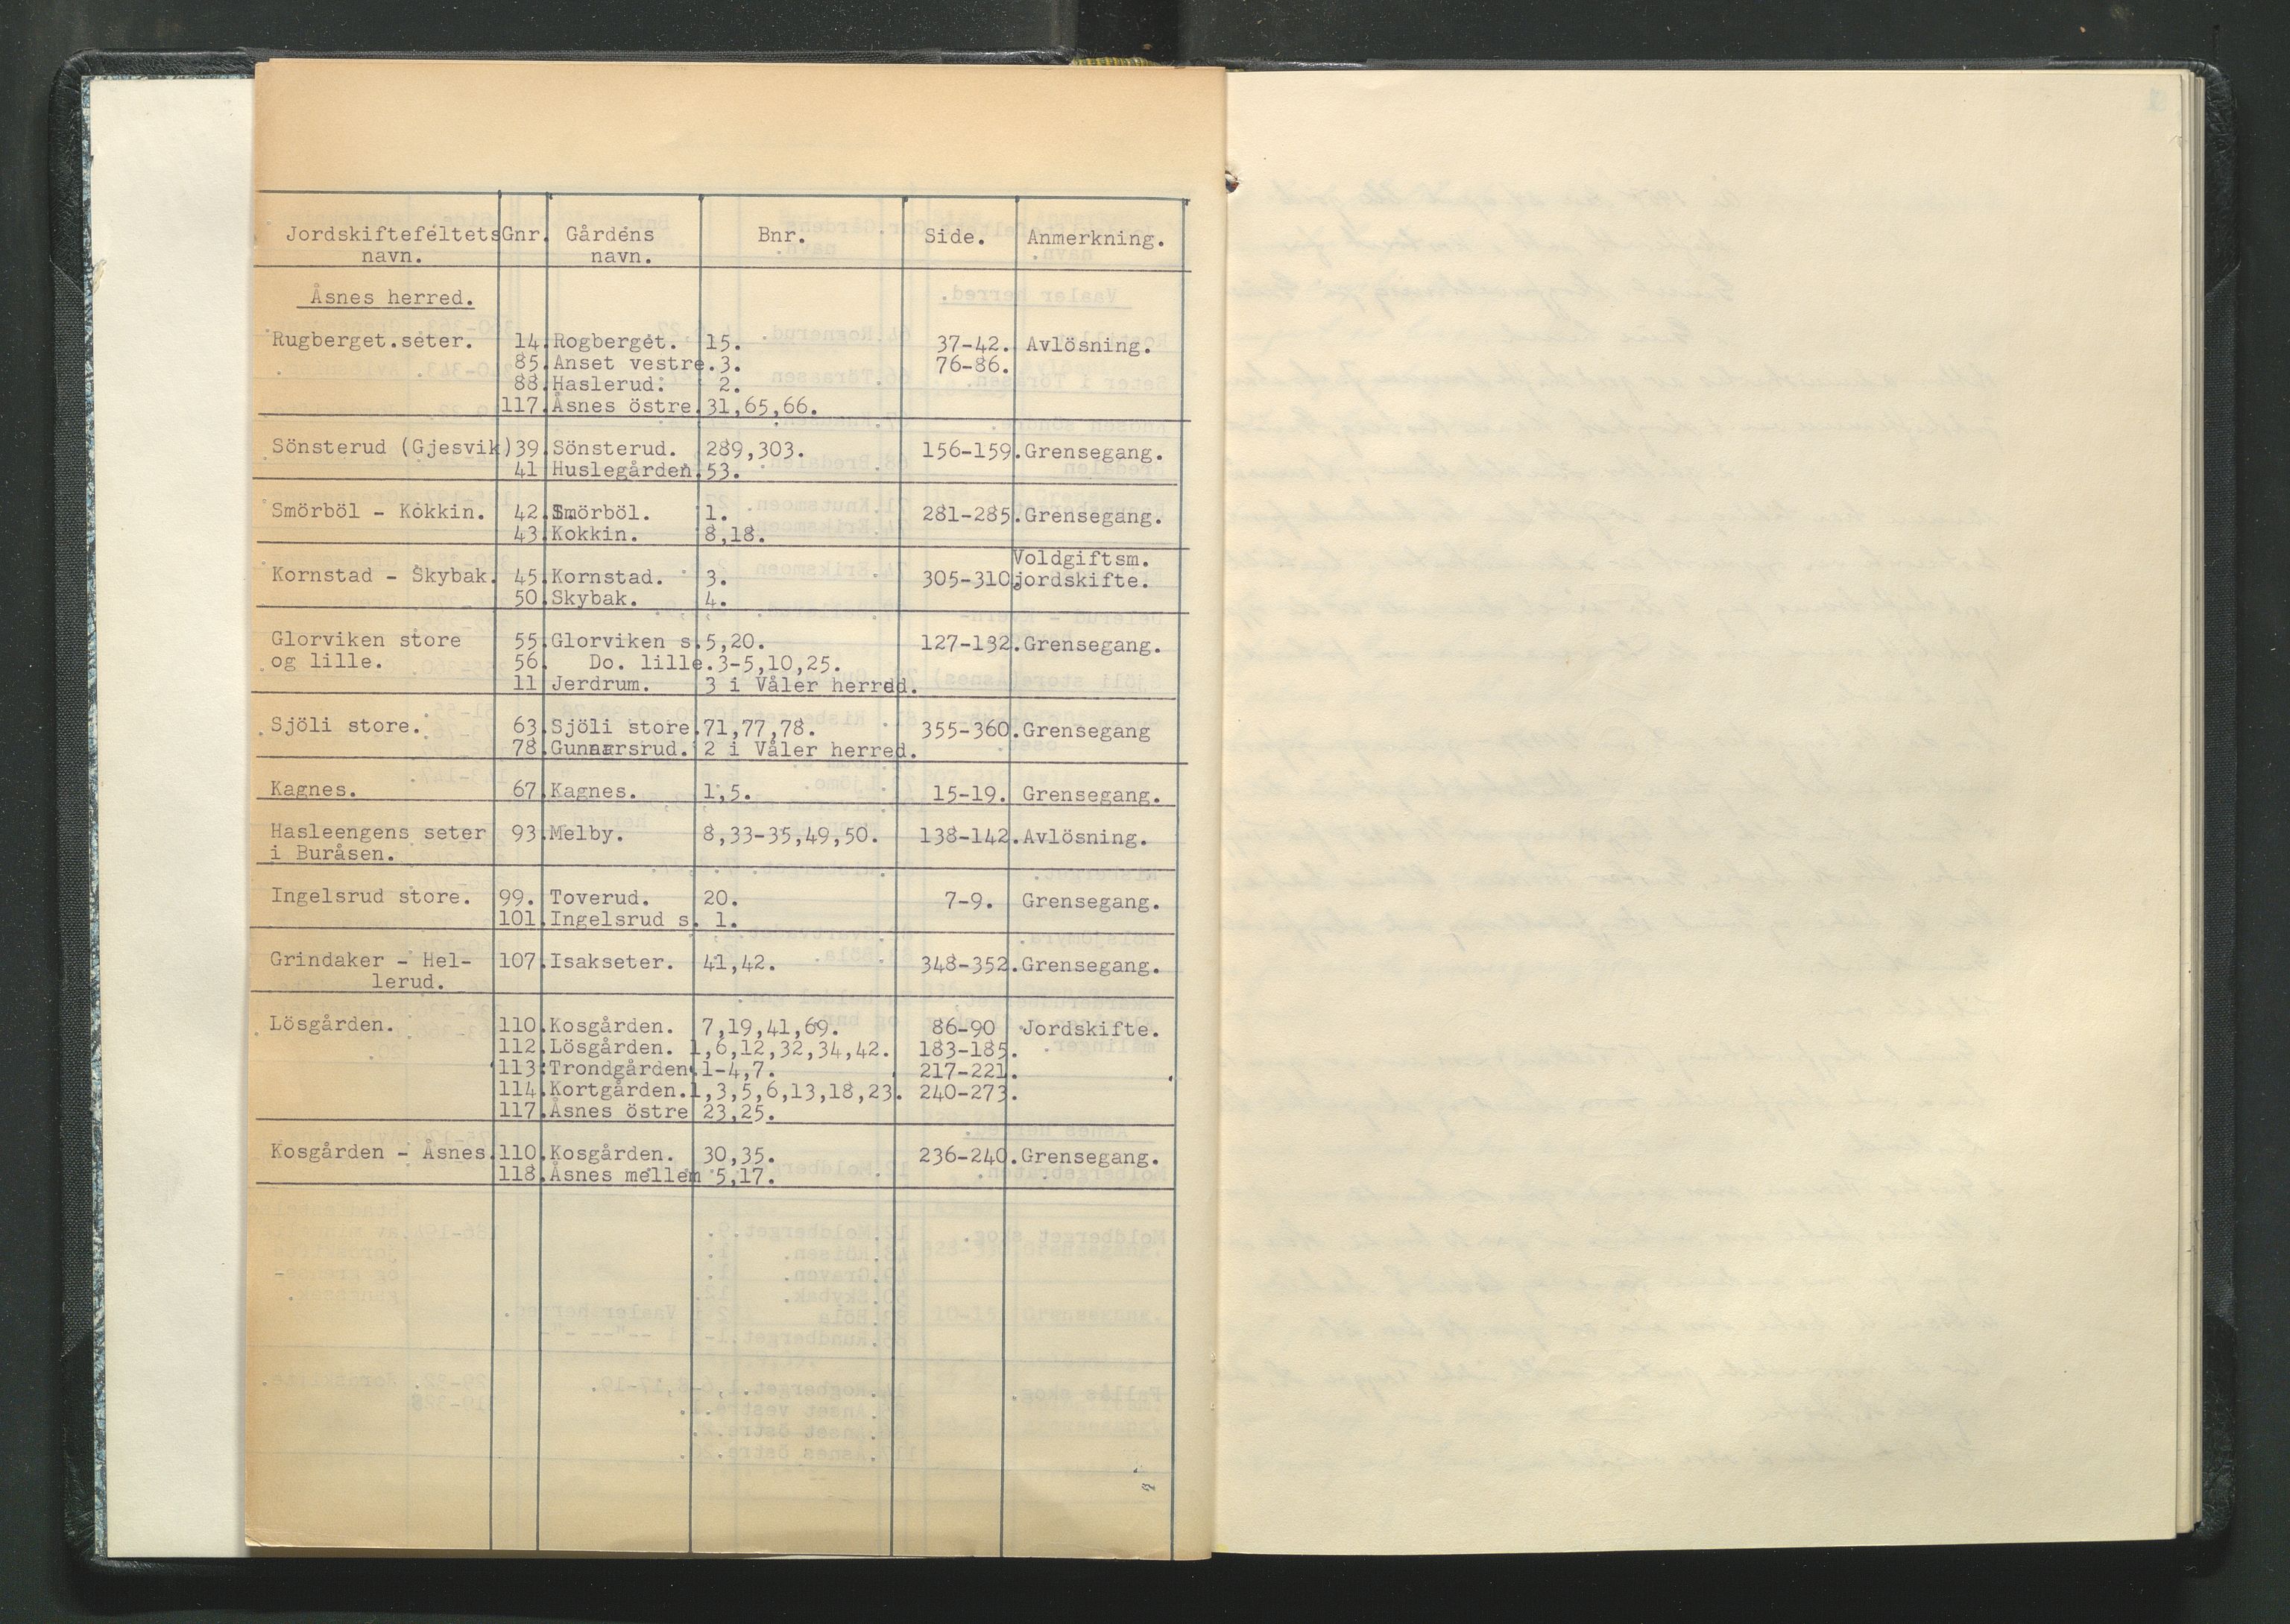 Jordskiftefeltets Gnr. Gårdens Bnr. Side. Anmerkning.
navn. navn.
Åsnes herred.
Rugberget.seter. 14. Rogberget. 15. 37-42. Avlösning.
85. Anset vestre. 3. 76-86.
88. Haslerud. 2.
117. Åsnes östre. 31,65,66.
Sönsterud (Gjesvik) 39. Sönsterud. 289,303. 156-159. Grensegang.
41 Huslegården. 53.
Smörböl - Kokkin. 42. Smörböl. 1. 281-285. Grensegang.
43. Kokkin. 8,18.
Voldgiftsm.
Kornstad - Skybak. 45. Kornstad. 3. 305-310. jordskifte.
50. Skybak. 4.
Glorviken store 55. Glorviken s. 5,20. 127-132. Grensegang.
og lille. 56. Do. lille. 3-5,10,25.
11 Jerdrum. 3 i Våler herred.
Sjöli store. 63. Sjöli store. 71,77,78. 355-360. Grensegang
78. Gunnarsrud. 2 i Våler herred.
Kagnes. 67. Kagnes. 1,5. 15-19. Grensegang.
Hasleengens seter 93. Melby. 8,33-35,49,50. 138-142. Avlösning.
i Buråsen.
Ingelsrud store. 99. Toverud. 20. 7-9. Grensegang.
101. Ingelsrud s. 1.
Grindaker - Hel- 107. Isakseter. 41,42. 348-352. Grensegang.
lerud.
Lösgården. 110. Kosgården. 7,19,41,69. 86-90 Jordskifte.
112. Lösgården. 1,6,12,32,34,42. 183-185.
113. Trondgården. 1-4,7. 217-221.
114. Kortgården. 1,3,5,6,13,18,23. 240-273.
117. Åsnes östre 23,25.
Kosgården - Åsnes. 110. Kosgården. 30,35. 236-240. Grensegang.
118. Åsnes mellem 5,17.